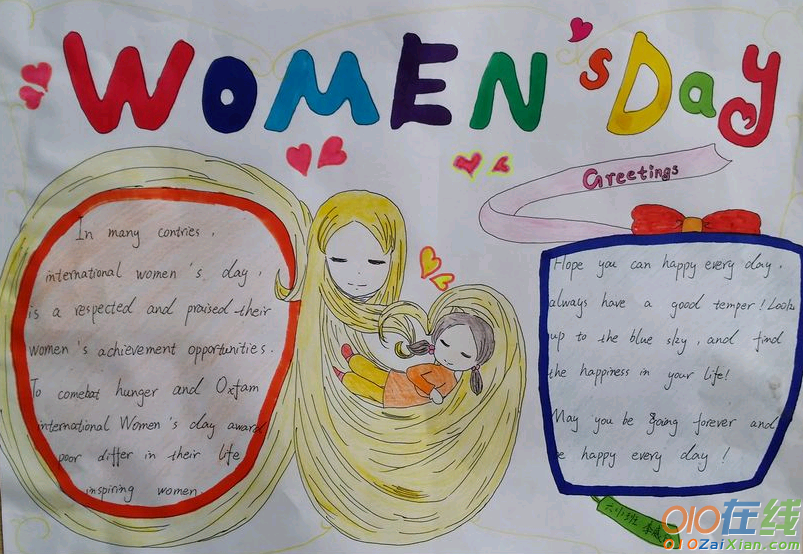 WOMEN'S Day
Greetings
In many contries,
international women's day,
is a respected and praised their
women's achievement opportunities.
To comebat hunger and Oxfam
international Women's day award
poor differ in their life
inspiring women.
Hope you can happy every day,
always have a good temper! Look
up to the blue sky, and find
the happiness in your life!
May you be going forever and
be happy every day!
010在线
010ZaiXian.com